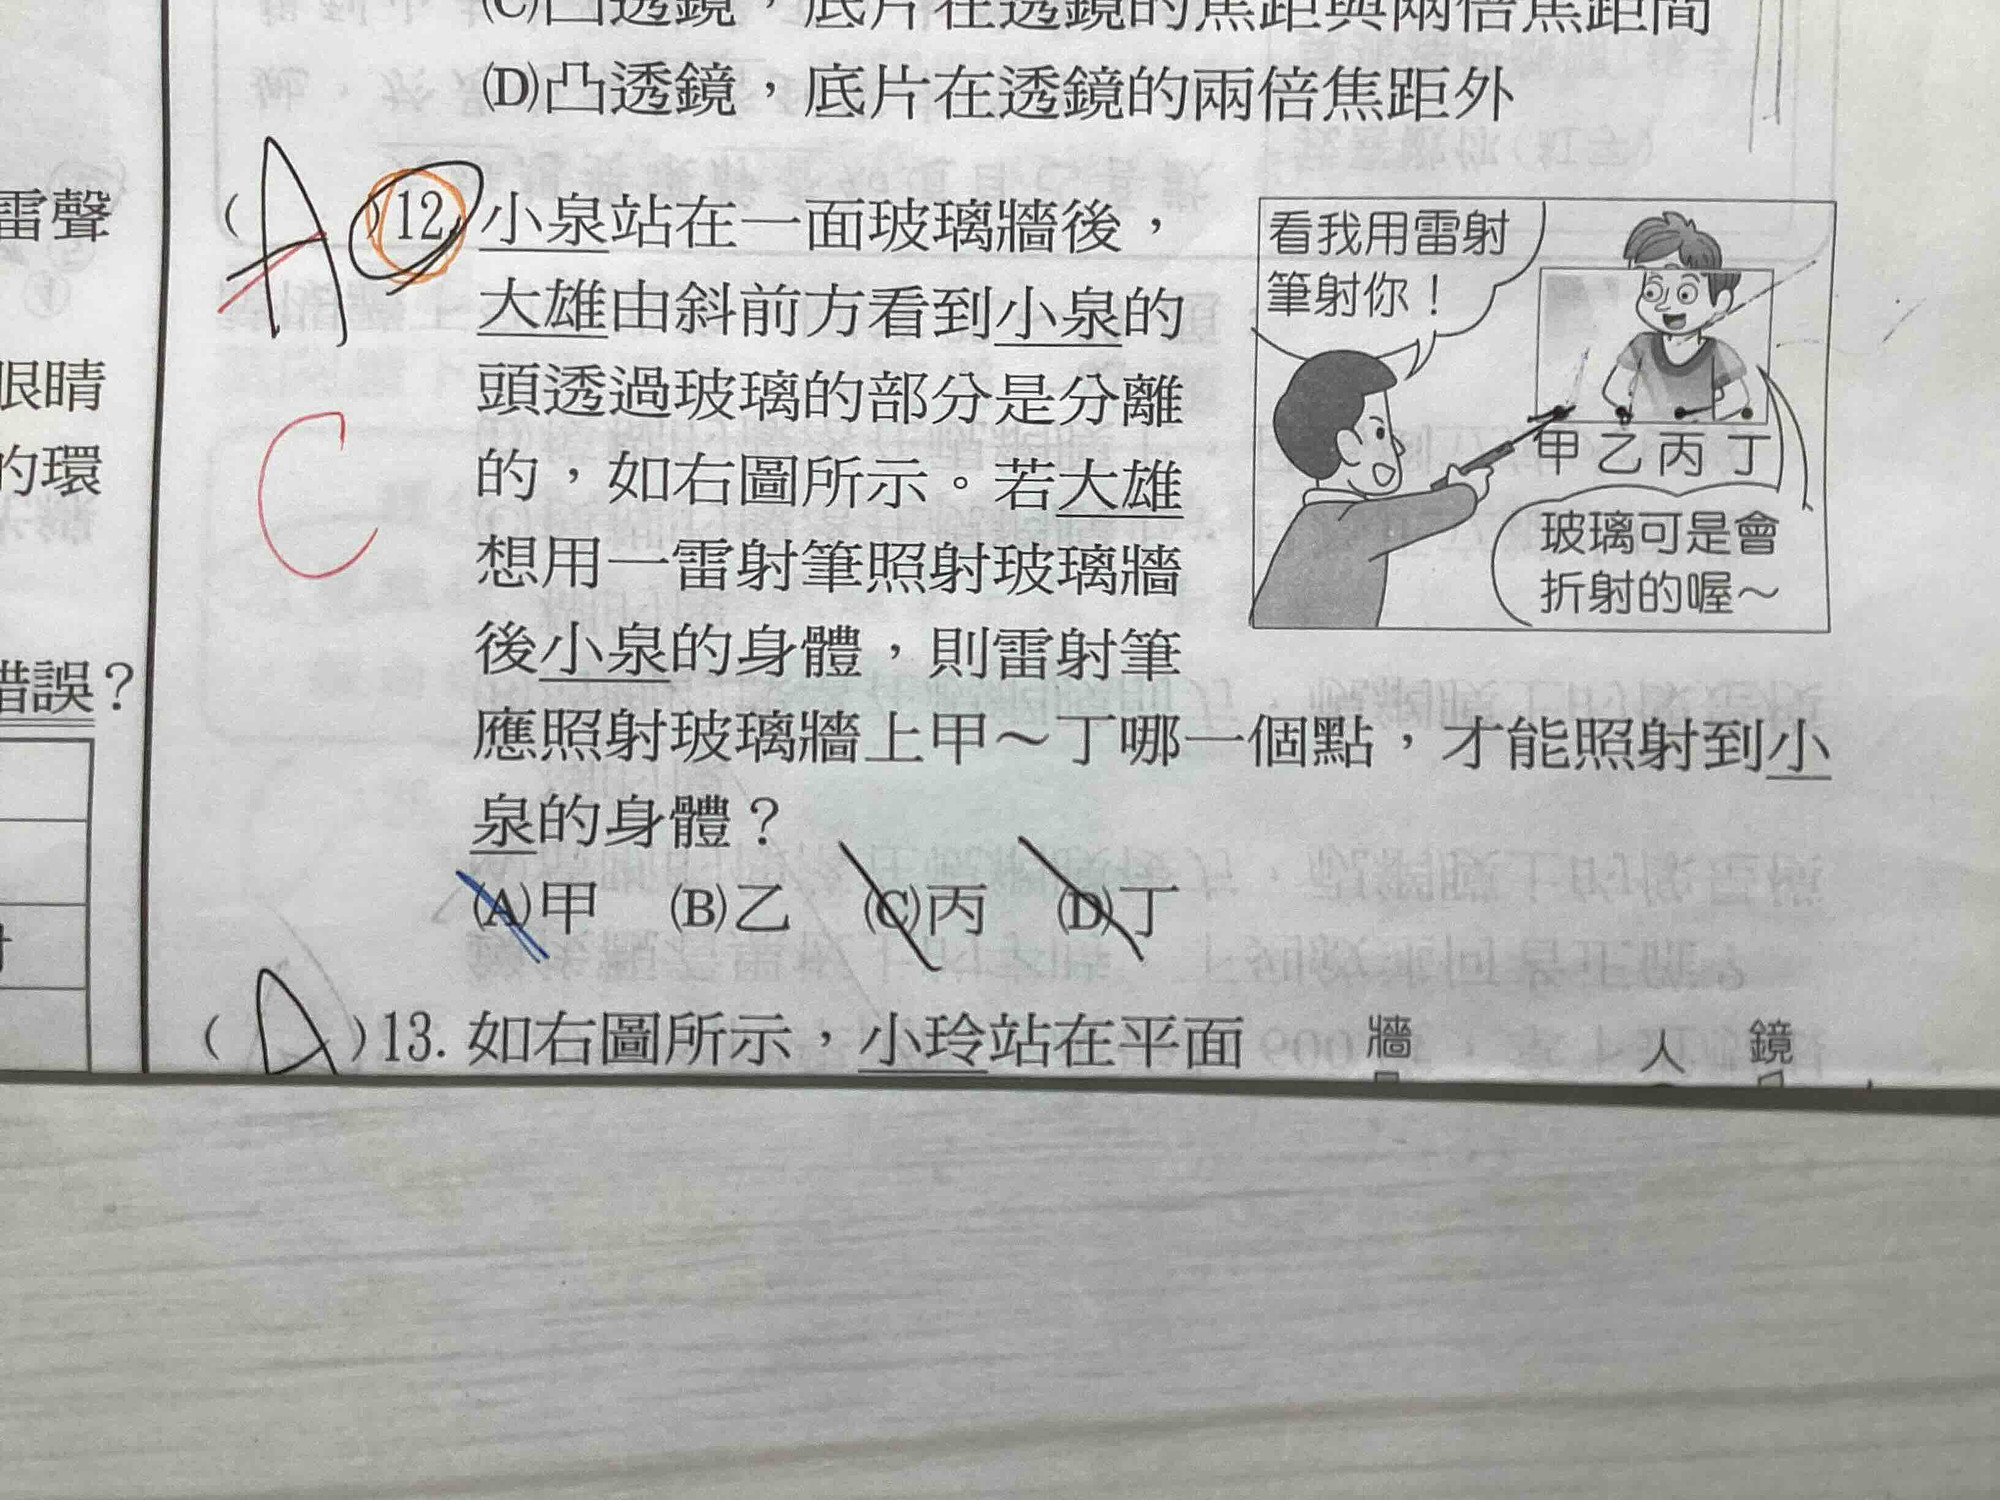 (C)凸透鏡，底片在透鏡的焦距與兩倍焦距間
(D)凸透鏡，底片在透鏡的兩倍焦距外
雷聲
眼睛
的環
錯誤？
(A)12. 小泉站在一面玻璃牆後，
大雄由斜前方看到小泉的
頭透過玻璃的部分是分離
的，如右圖所示。若大雄
想用一雷射筆照射玻璃牆
後小泉的身體，則雷射筆
應照射玻璃牆上甲～丁哪一個點，才能照射到小
泉的身體？
C
(A)甲 (B)乙 (C)丙 (D)丁
看我用雷射
筆射你！
甲乙丙丁
玻璃可是會
折射的喔～
(A)13. 如右圖所示，小玲站在平面
牆 人 鏡